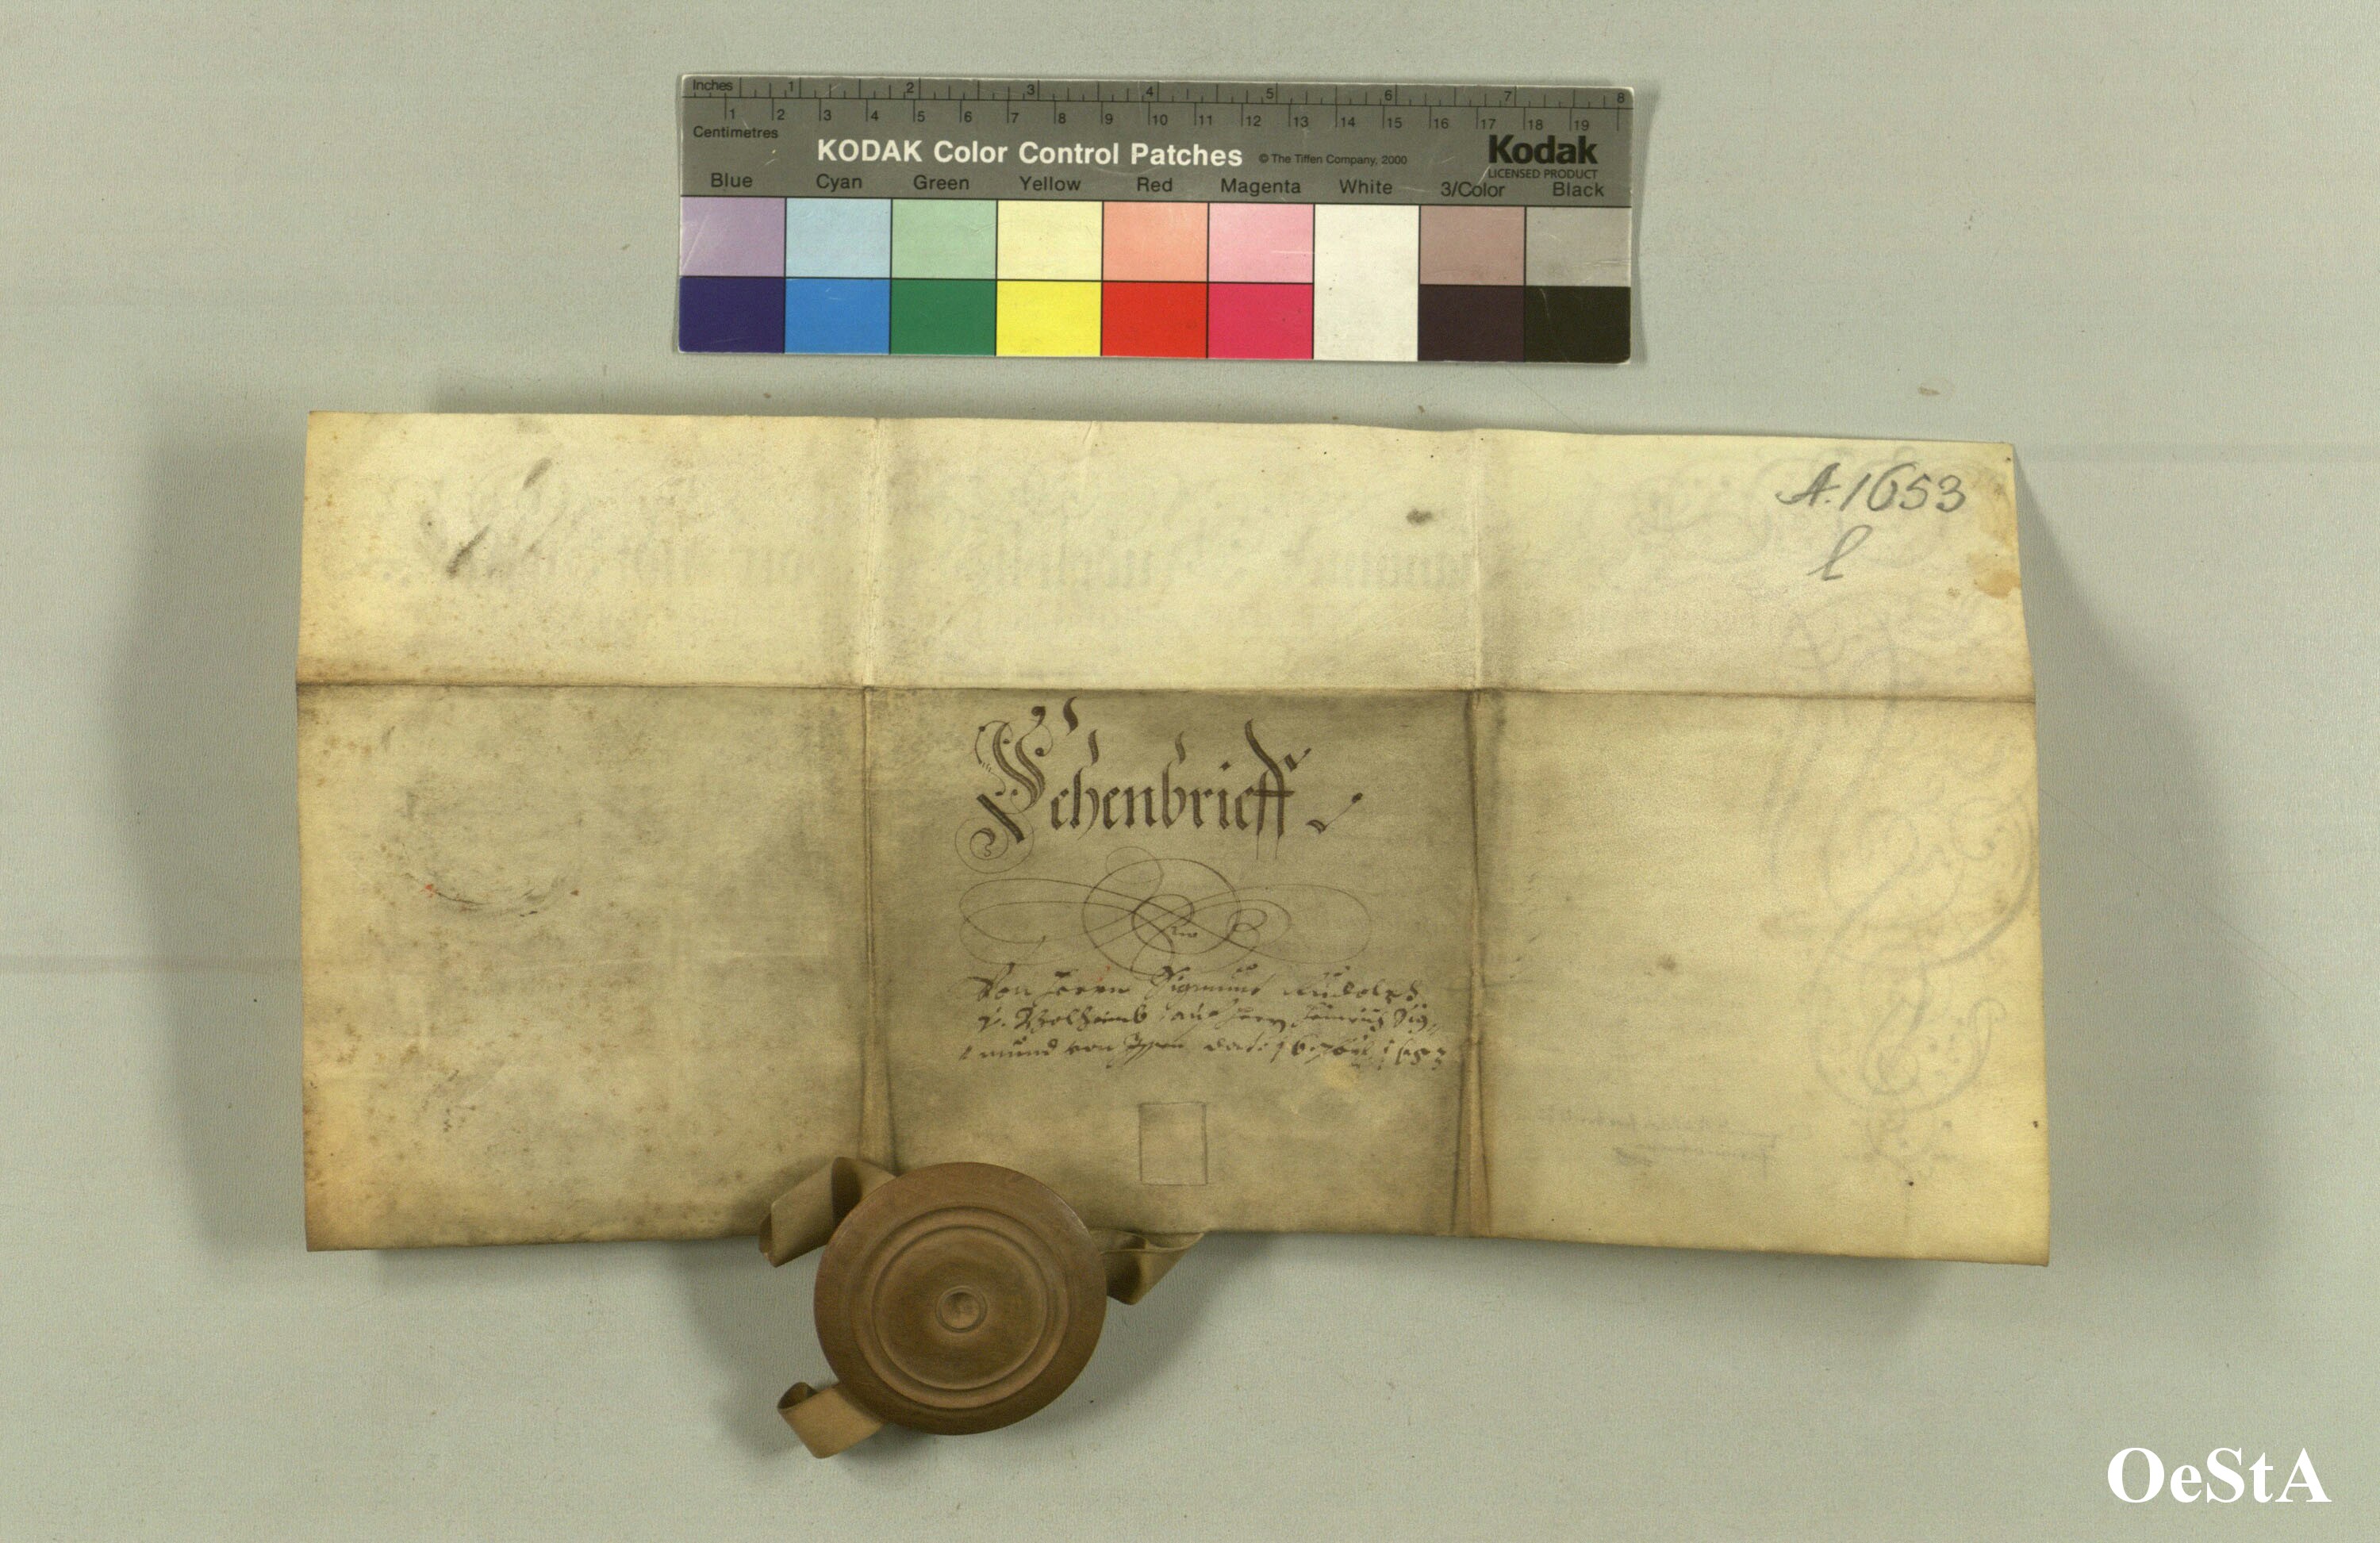 Inches 1 2 3 4 5 6 7 8
1 2 3 4 5 6 7 8 9 10 11 12 13 14 15 16 17 18 19
Centimetres
KODAK Color Control Patches © The Tiffen Company, 2000 Kodak
LICENSED PRODUCT
Blue Cyan Green Yellow Red Magenta White 3/Color Black
A. 1653
l
Lehenbrieff
Von Herrn Sigmund Rudolph
v. auf Herrn Sig¬
mund von dato 1653
OeStA